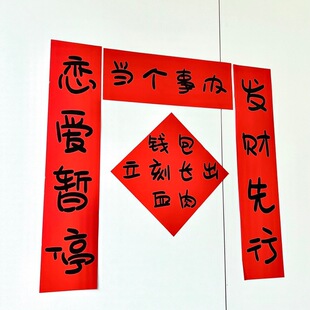 恋爱暂停
当个事办
发财先行
钱包
立刻长出
血肉